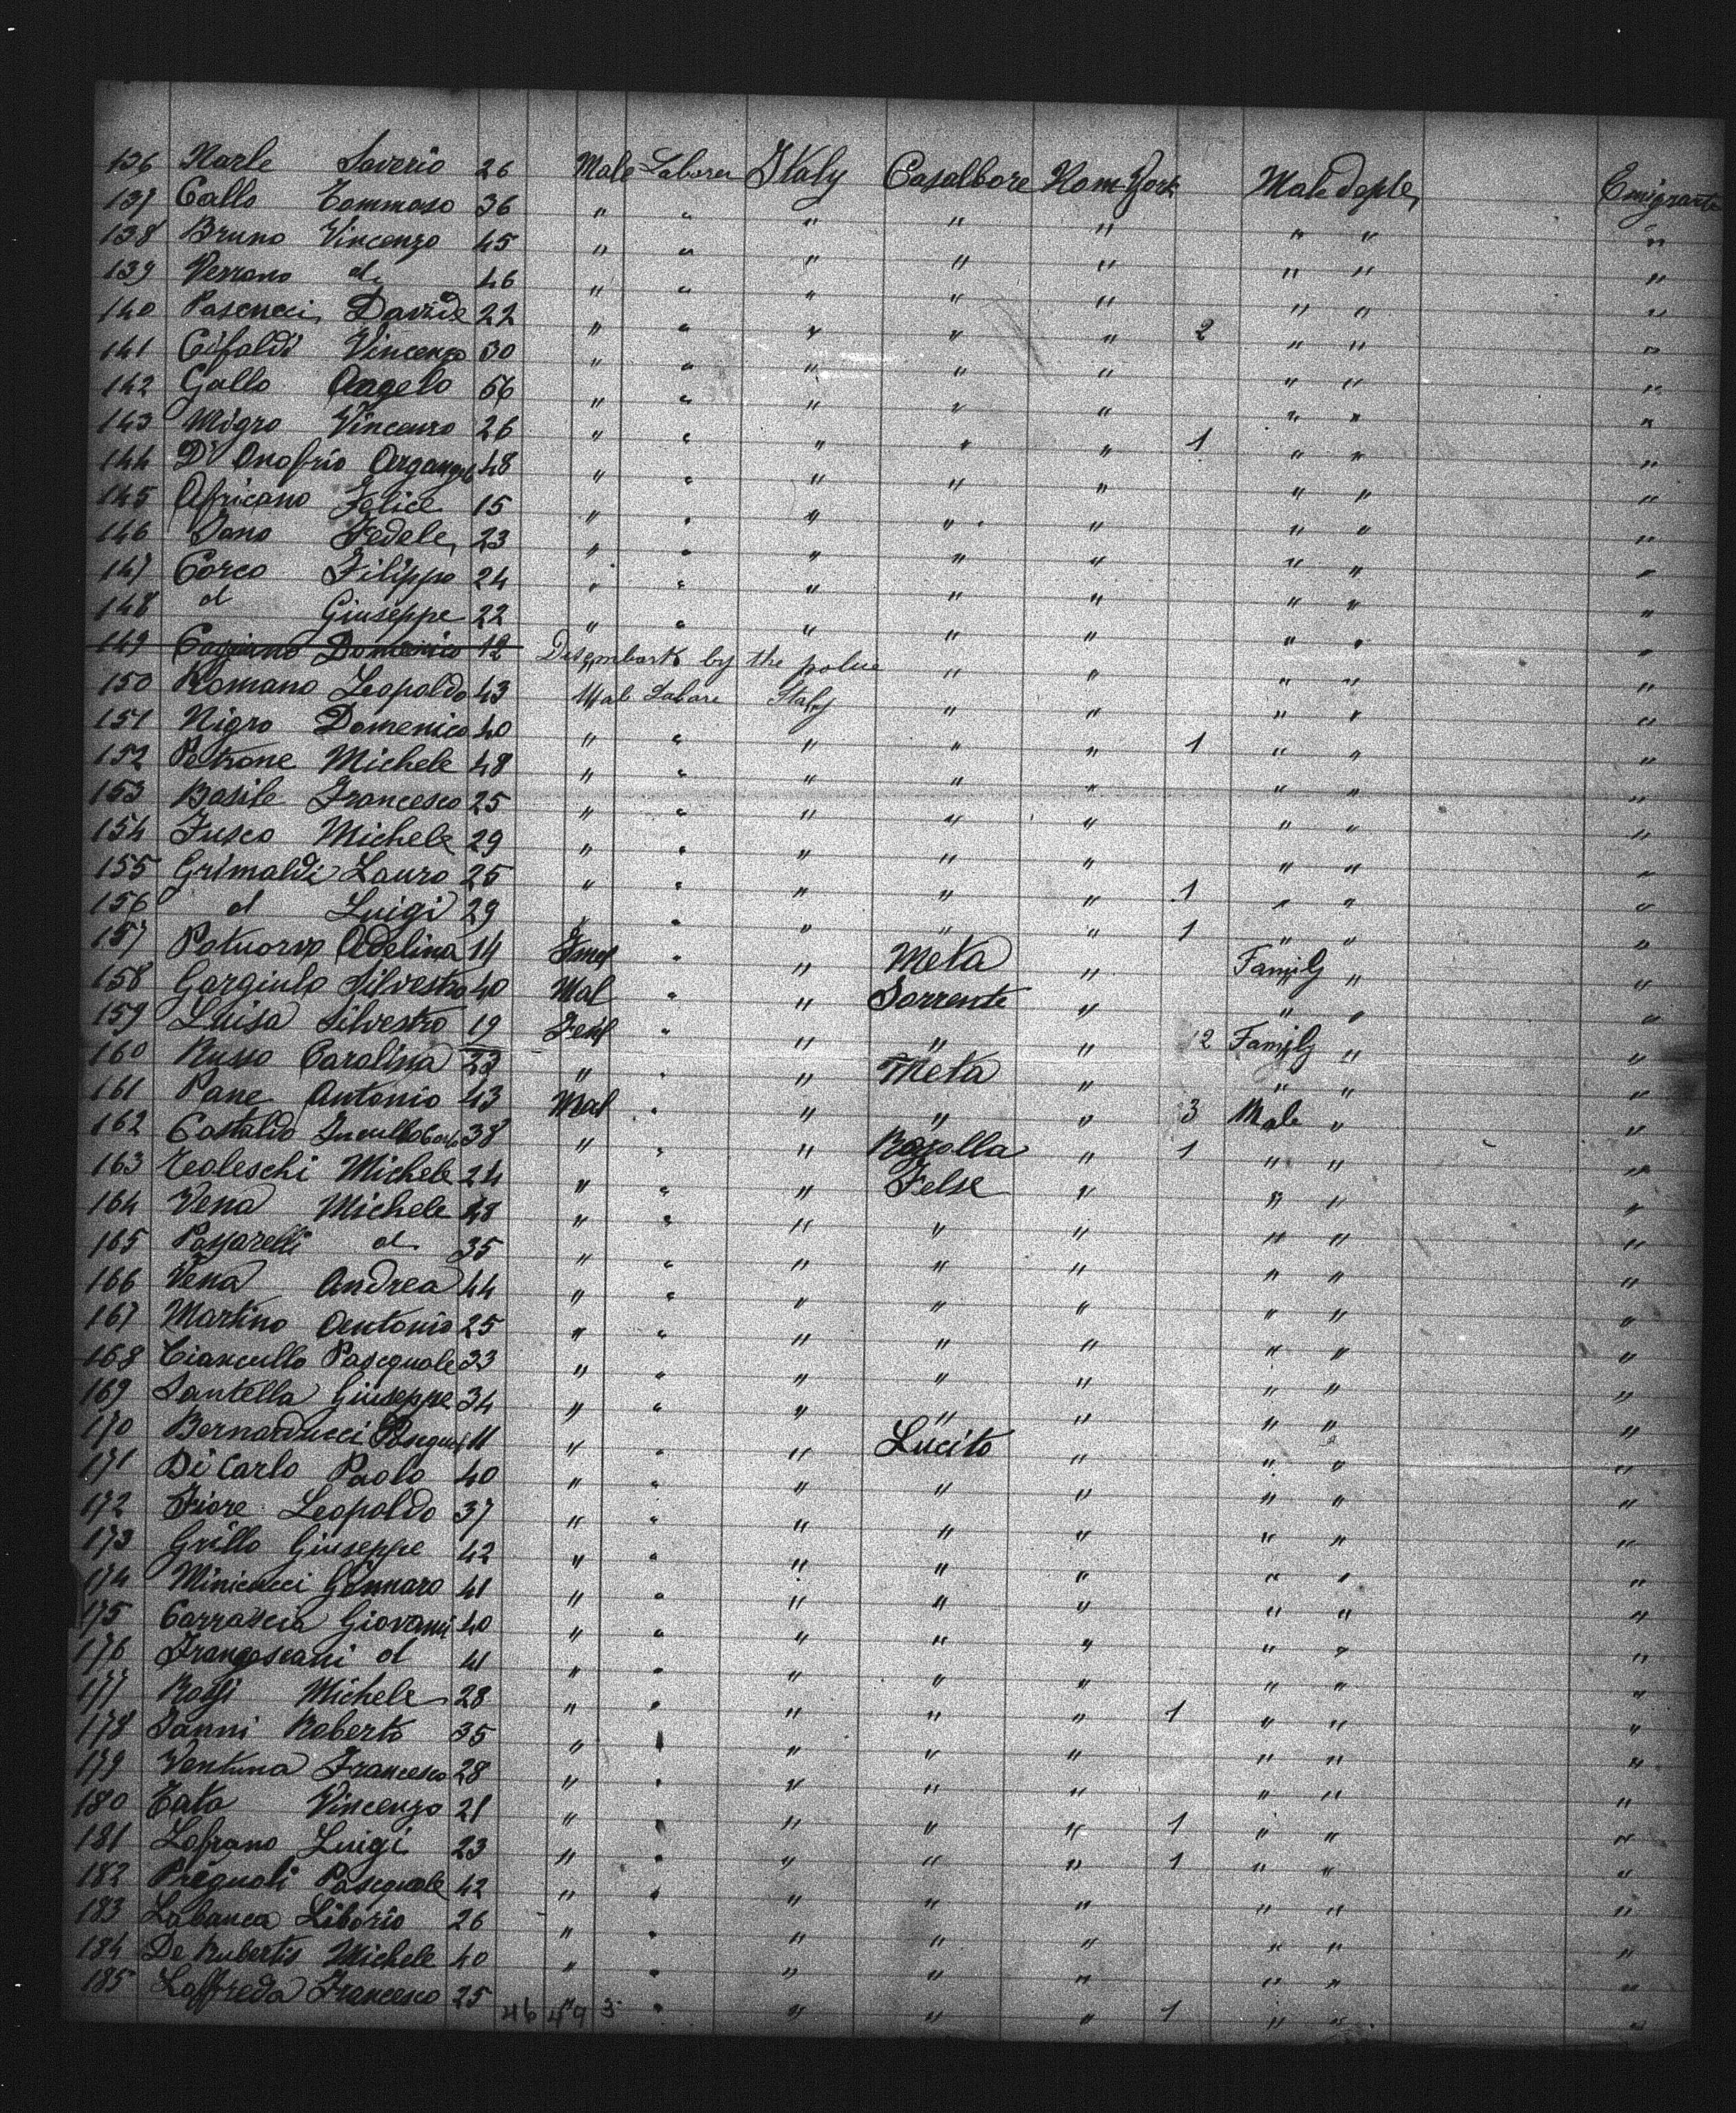 136 Narle Saverio 26 Male Laborer Italy Casalbore New York Male deple, Emigrante
137 Callo Tommaso 36 " " " " " " " "
138 Bruno Vincenzo 45 " " " " " " " "
139 Verrano d. 46 " " " " " " " "
140 Pascucci, Davide 22 " " " " " 2 " " "
141 Cifaldi Vincenzo 30 " " " " " " " "
142 Gallo Angelo 56 " " " " " " " "
143 Migro Vincenzo 26 " " " " " 1 " " "
144 D'Onofrio 48 " " " " " " " "
145 Africano Felice 15 " " " " " " " "
146 Iano Fedele, 23 " " " " " " " "
147 Corco Filippo 24 " " " " " " " "
148 d Giuseppe 22 " " " " " " " "
149 Domenico 12 Disembark by the police " " " " "
150 Romano Leopoldo 43 Male Labore Italy " " " " "
151 Nigro Domenico 40 " " " " " 1 " " "
152 Petrone Michele 48 " " " " " " " "
153 Basile Francesco 25 " " " " " " " "
154 Fusco Michele 29 " " " " " " " "
155 Grimaldi Lauro 25 " " " " " 1 " " "
156 d Luigi 29 " " " " " 1 " " "
157 Adelina 14 " " Meta " Family " "
158 Gargiulo Silvestro 40 Mal " " Sorrento " " " "
159 Luisa Silvestro 19 Fem " " " " 2 Family " "
160 Russo Carolina 23 " " " Meta " " " "
161 Pane Antonio 43 Mal " " " " 3 Male " "
162 Castaldo 38 " " " " 1 " " "
163 Tedeschi Michele 24 " " " Felse " " " "
164 Vena Michele 48 " " " " " " " "
165 Passarelli d 35 " " " " " " " "
166 Vena Andrea 44 " " " " " " " "
167 Martino Antonio 25 " " " " " " " "
168 Ciancullo Pasequale 33 " " " " " " " "
169 Santella Giuseppe 34 " " " " " " " "
170 Bernarducci 11 " " " Lucito " " " "
171 Di Carlo Paolo 40 " " " " " " " "
172 Fiore Leopoldo 37 " " " " " " " "
173 Grillo Giuseppe 42 " " " " " " " "
174 Minicucci Gennaro 41 " " " " " " " "
175 Carrascia Giovanni 40 " " " " " " " "
176 Francescani d 41 " " " " " " " "
177 Rossi Michele 28 " " " " " 1 " " "
178 Ianni Roberto 35 " " " " " " " "
179 Ventura Francesco 28 " " " " " " " "
180 Tata Vincenzo 21 " " " " " 1 " " "
181 Lofrano Luigi 23 " " " " " 1 " " "
182 Pregnoli Pasequale 42 " " " " " " " "
183 Labanca Liborio 26 " " " " " " " "
184 De Rubertis Michele 40 " " " " " " " "
185 Laffreda Francesco 25 " " " " " 1 " " "
46 49 3